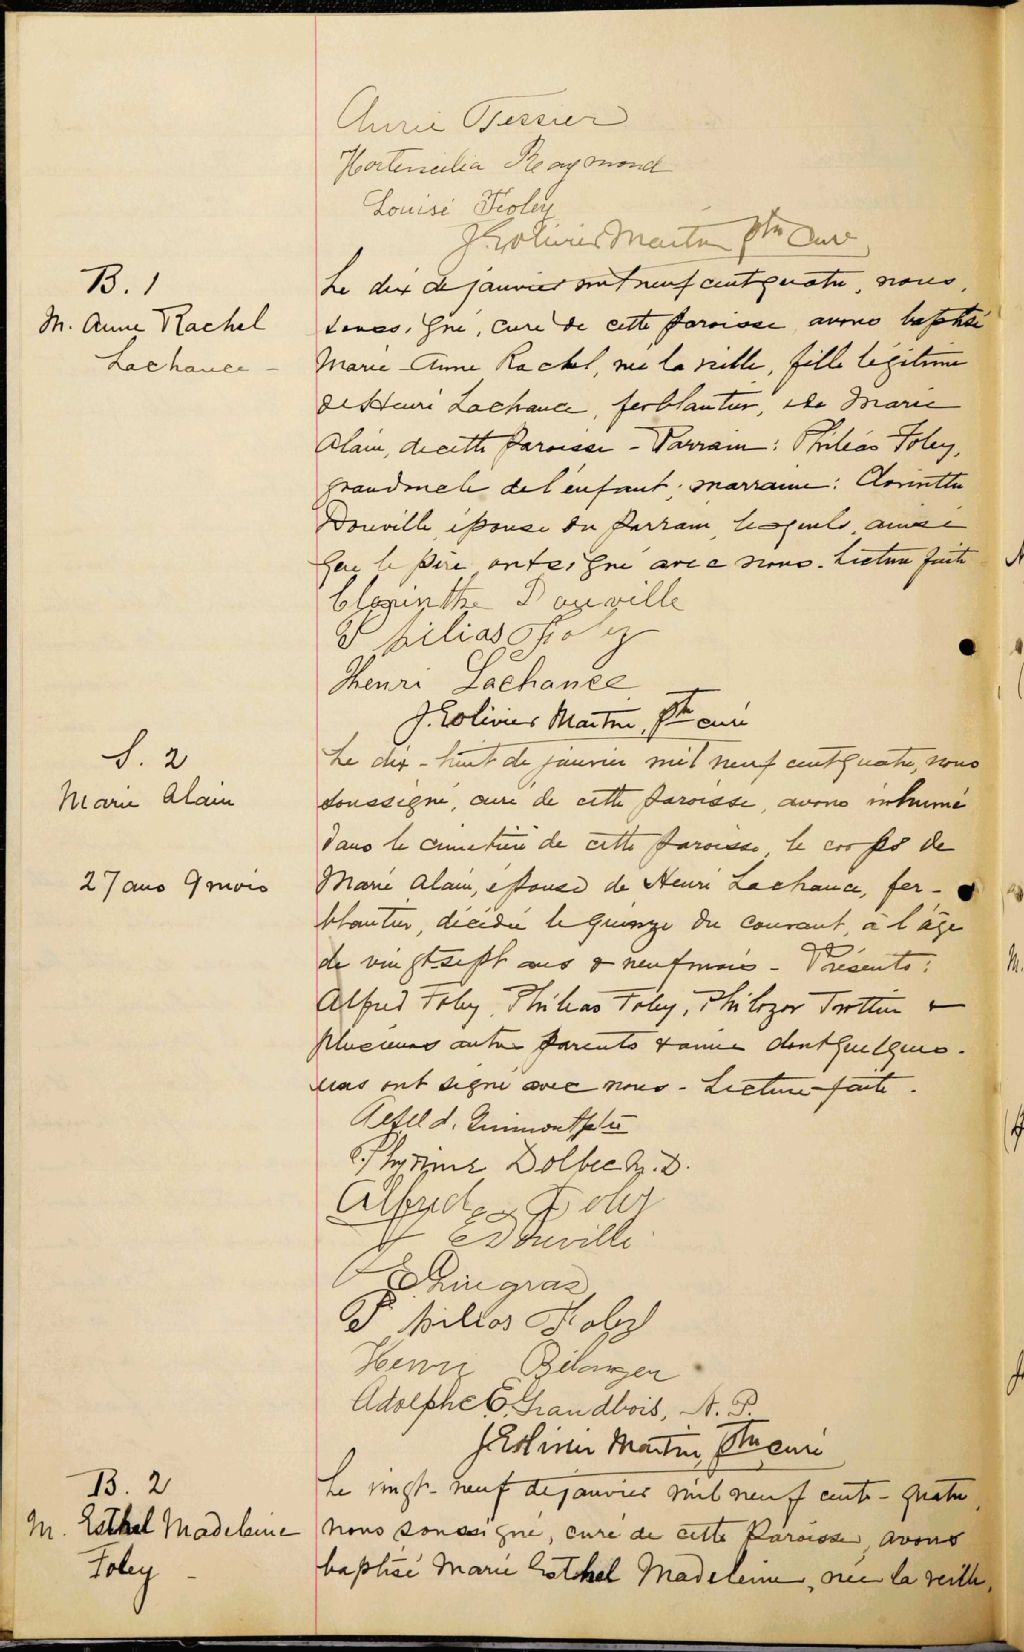 Annie Tessier
Hortencilia Raymond
Louise Foley
J. E. Olivier Martin ptre Curé
B. 1
M. Anne Rachel
Lachance -
Le dix de janvier mil neuf cent quatre, nous,
soussigné, curé de cette paroisse avons baptisé
Marie-Anne Rachel, née la veille, fille légitime
de Henri Lachance, ferblantier, & de Marie
Alain, de cette paroisse - Parrain: Philéas Foley,
grandoncle de l'enfant; marraine: Clorinthe
Douville, épouse du parrain, lesquels, ainsi
que le père, ont signé avec nous. Lecture faite
Clorinthe Douville
Philias Foley
Henri Lachance
J. E. Olivier Martin, ptre curé
S. 2
Marie Alain
27 ans 9 mois
Le dix-huit de janvier mil neuf cent quatre, nous
soussigné, curé de cette paroisse, avons inhumé
dans le cimetière de cette paroisse, le corps de
Marie Alain, épouse de Henri Lachance, fer-
blantier, décédée le quinze du courant, à l'âge
de vingt-sept ans & neuf mois - Présents:
Alfred Foley, Philéas Foley, Philozor Trottier &
plusieurs autres parents & amis dont quelques-
uns ont signé avec nous - Lecture faite.
Alfd. Guimont ptre
Dolbec M.D.
Alfred Foley
E Douville
E Gingras
Philias Foley
Henri Bélanger
Adolphe E. Grandbois, N. P.
J. E. Olivier Martin, ptre curé
B. 2
M. Esthel Madeleine
Foley -
Le vingt-neuf de janvier mil neuf cent-quatre,
nous soussigné, curé de cette paroisse, avons
baptisé Marie Esthel Madeleine, née la veille,